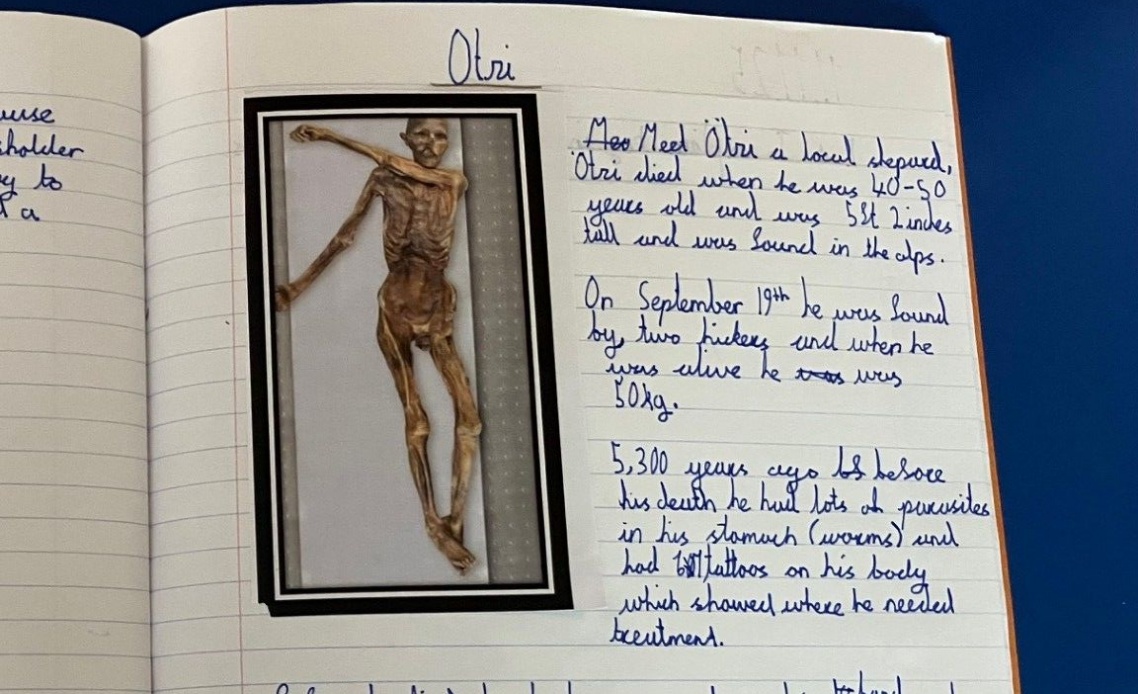 Otzi
wse
sholder
y to
a
Meo Meet Ötzi a local shepard,
Ötzi died when he was 40-50
years old and was 5ft 2 inches
tall and was found in the alps.
On September 19th he was found
by, two hickers and when he
was alive he was was
50kg.
5,300 years ago bf before
his death he had lots of parasites
in his stomach (worms) and
had tattoos on his body
which showed where he needed
treatment.